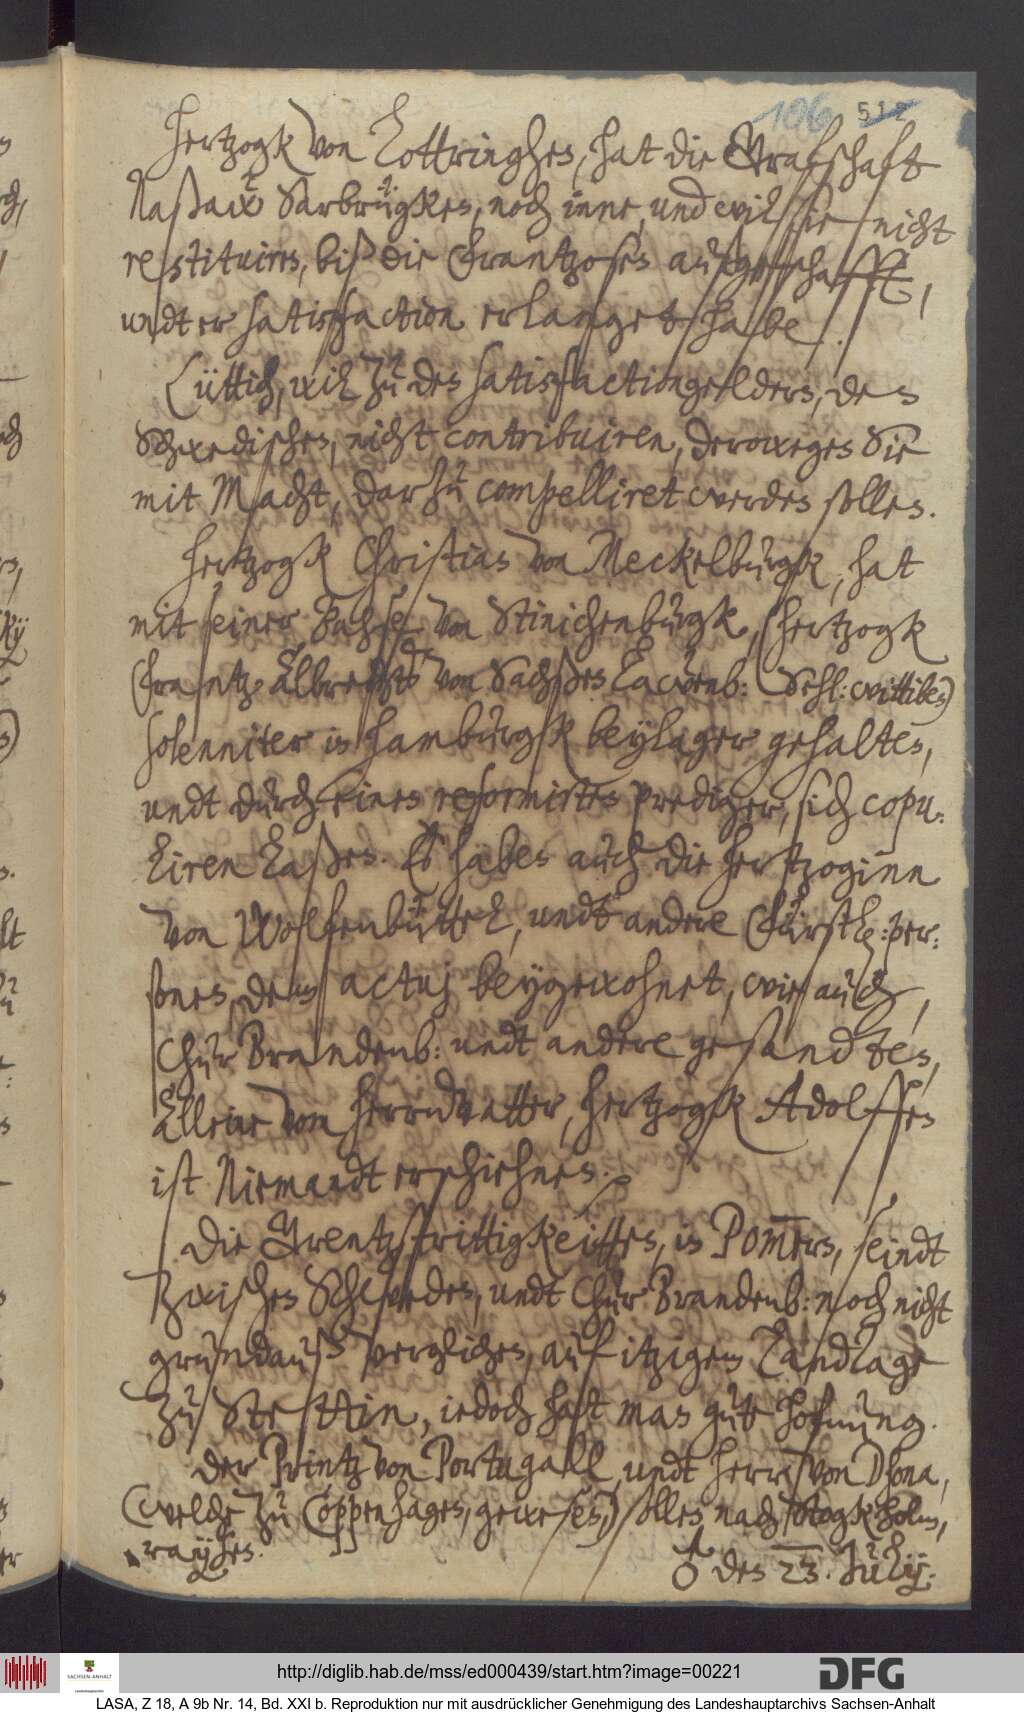 106 512
Hertzogk von Lottringhen, hat die Graffschaft
Naßaw Sarbrügken, noch inne, und will sie nicht
restituiren, biß die Frantzosen außgeschafft,
undt er satisfaction erlanget habe.
Lüttich, will zu den satisfactiongeldern, den
Schwedischen, nicht contribuiren, derowegen Sie
mit Macht, darzu compelliret werden sollen.
Hertzogk Christian von Meckelburgk, hat
mit seiner Bahse von Stinichenburgk, (Hertzogk
Frantz Albrechts von Sachßen Lawenb: Sehl: wittiben)
solenniter in Hamburgk beylager gehalten,
undt durch einen reformirten prediger, sich copu-
liren laßen. Es haben auch die Hertzoginn
von Wolfenbüttel, undt andere Fürstl: per-
sonen, dem actuj beygewohnet, wie auch,
Chur Brandenb: undt andere gesandten,
Alleine vom Herrnvatter, Hertzogk Adolffen
ist Niemandt erschiehnen.
Die Grentzstrittigkeitten, in Pom̄ern, seindt
zwischen Schweden, undt Chur Brandenb: noch nicht
grundauß verglichen, auf itzigem Landtage
zu Stettin, iedoch hatt man gute hofnung.
Der Printz von Portugall, undt Herr von Dhona,
(welche zu Coppenhagen, gewesen,) sollen nach Stogkholm,
raysen.
den 23. July:
http://diglib.hab.de/mss/ed000439/start.htm?image=00221
SACHSEN-ANHALT
DFG
LASA, Z 18, A 9b Nr. 14, Bd. XXI b. Reproduktion nur mit ausdrücklicher Genehmigung des Landeshauptarchivs Sachsen-Anhalt